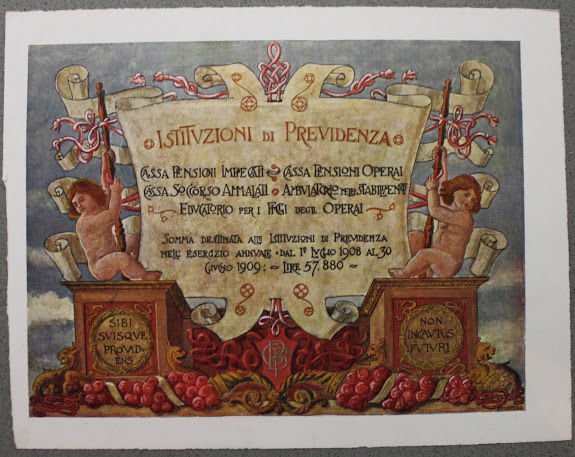 ISTITVZIONI DI PREVIDENZA
CASSA PENSIONI IMPIEGATI CASSA PENSIONI OPERAI
CASSA SOCCORSO AMMALATI AMBVLATORIO NELLO STABILIMENTO
EDVCATORIO PER I FIGLI DEGLI OPERAI
SOMMA DESTINATA ALLE ISTITVZIONI DI PREVIDENZA
NELL' ESERCIZIO ANNVALE · DAL 1º LVGLIO 1908 AL 30
GIVGNO 1909: ~ LIRE 57.880 ~
SIBI
SVISQVE
PROVID-
ENS
NON
INCAVTVS
FVTVRI